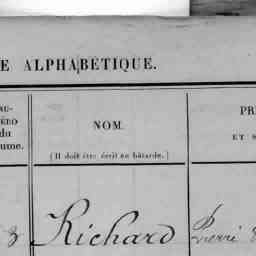 E ALPHABÉTIQUE.
AU-
ÉRO
du
ume.
NOM.
(Il doit être écrit en bâtarde.)
PR
ET S
3 Richard Pierre